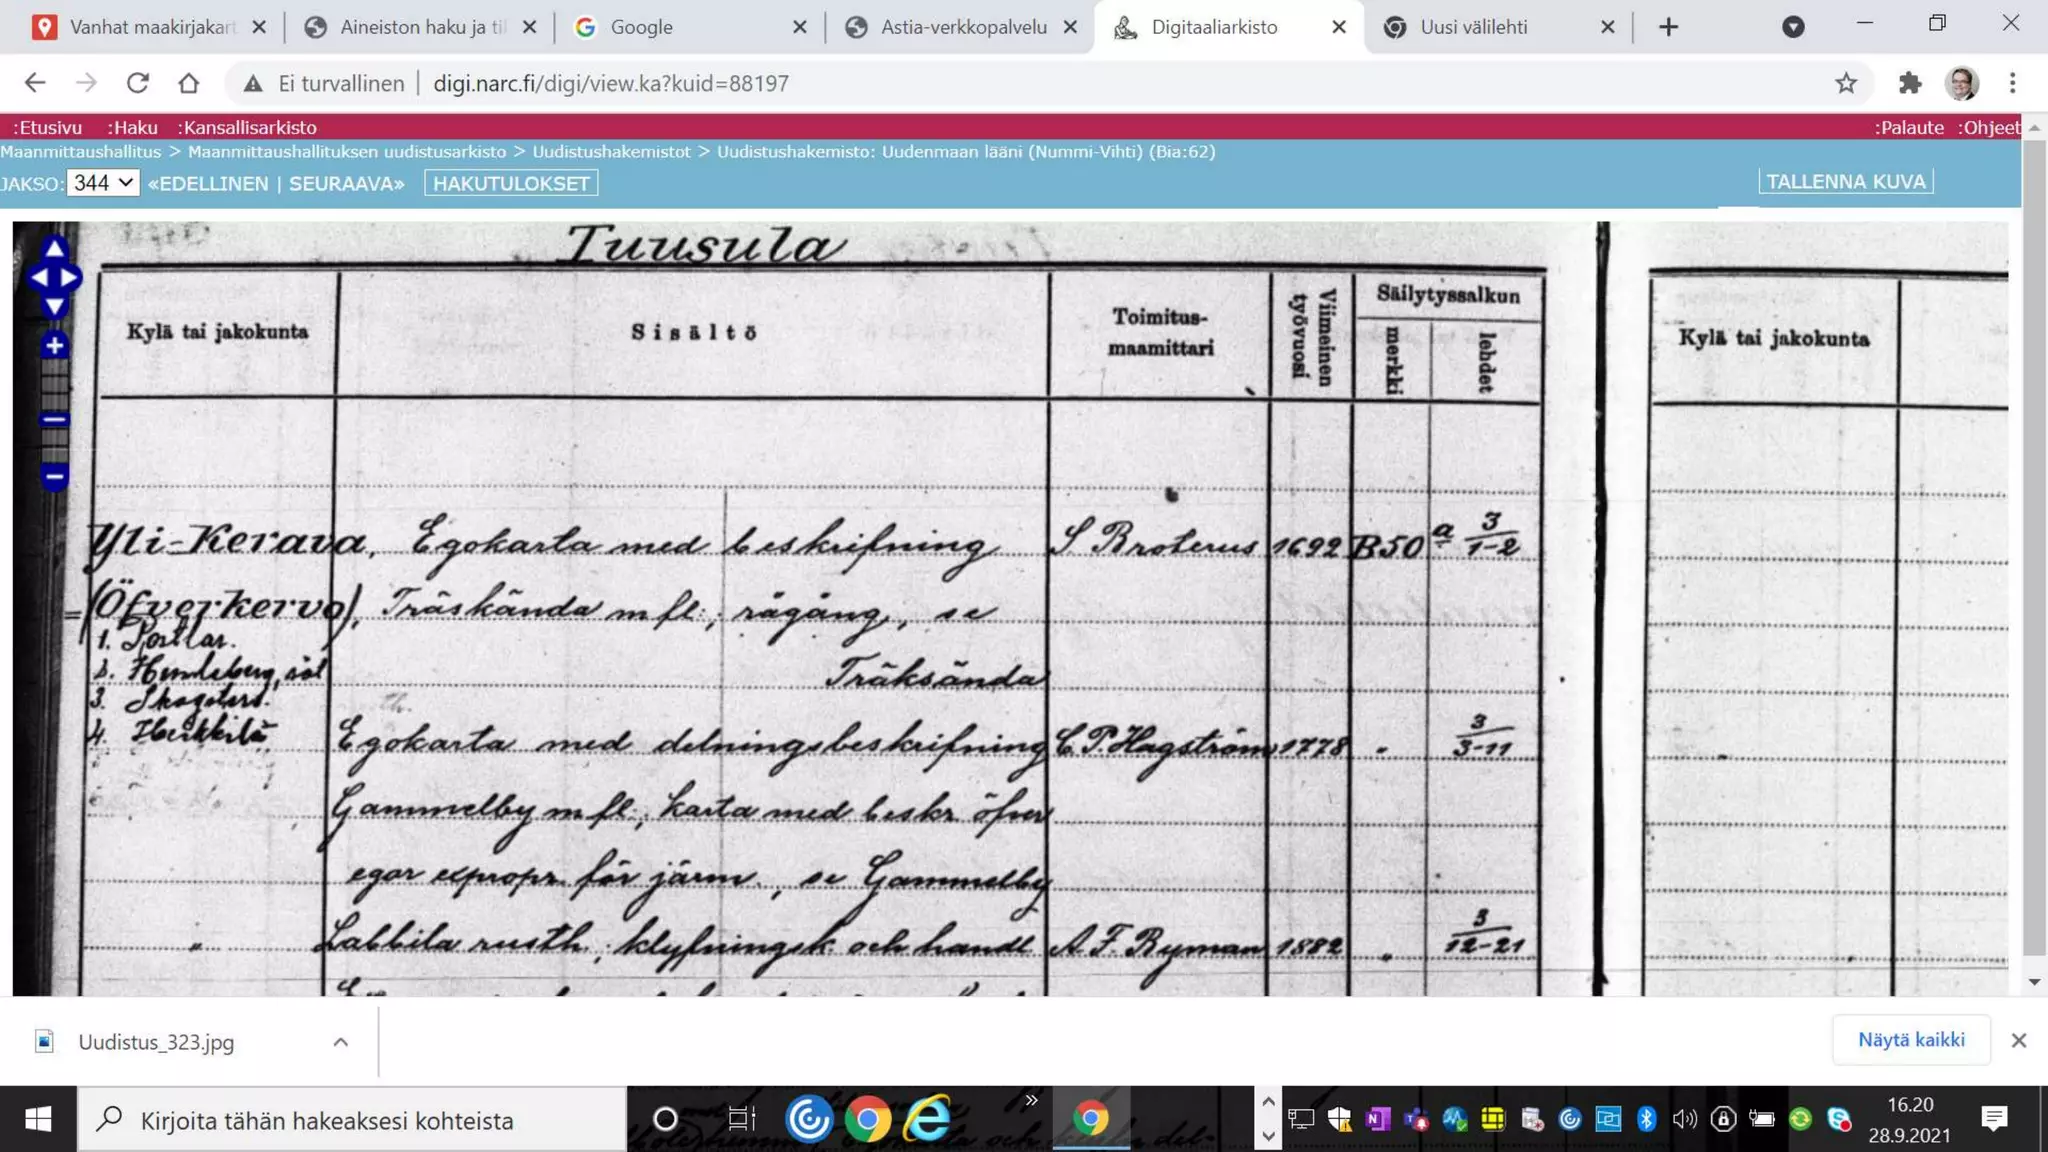 Vanhat maakirjakart
Aineiston haku ja til
Google
Astia-verkkopalvelu
Digitaaliarkisto
Uusi välilehti
Ei turvallinen | digi.narc.fi/digi/view.ka?kuid=88197
:Etusivu :Haku :Kansallisarkisto :Palaute :Ohjeet
Maanmittaushallitus > Maanmittaushallituksen uudistusarkisto > Uudistushakemistot > Uudistushakemisto: Uudenmaan lääni (Nummi-Vihti) (Bia:62)
JAKSO: 344 «EDELLINEN | SEURAAVA» HAKUTULOKSET TALLENNA KUVA
Tuusula
Kylä tai jakokunta
Sisältö
Toimitus-
maamittari
Viimeinen
työvuosi
Säilytyssalkun
merkki
lehdet
Kylä tai jakokunta
Yli-Kerava, Egokarta med beskrifning S Broterus 1692 B50 a 3/1-2
=(Öfverkervo), Träskända m fl:, rågång, se
1. Träksända
2.
3.
4. Heikkilä Egokarta med delningsbeskrifning C. P. Hagström 1778 " 3/3-11
Gammelby m fl:, karta med beskr öfver
egor expropr. för järnv., se Gammelby
" Labbila rusth, klyfningsk och handl A. F. Ryman 1882 " 3/12-21
Uudistus_323.jpg
Näytä kaikki
Kirjoita tähän hakeaksesi kohteista
16.20
28.9.2021